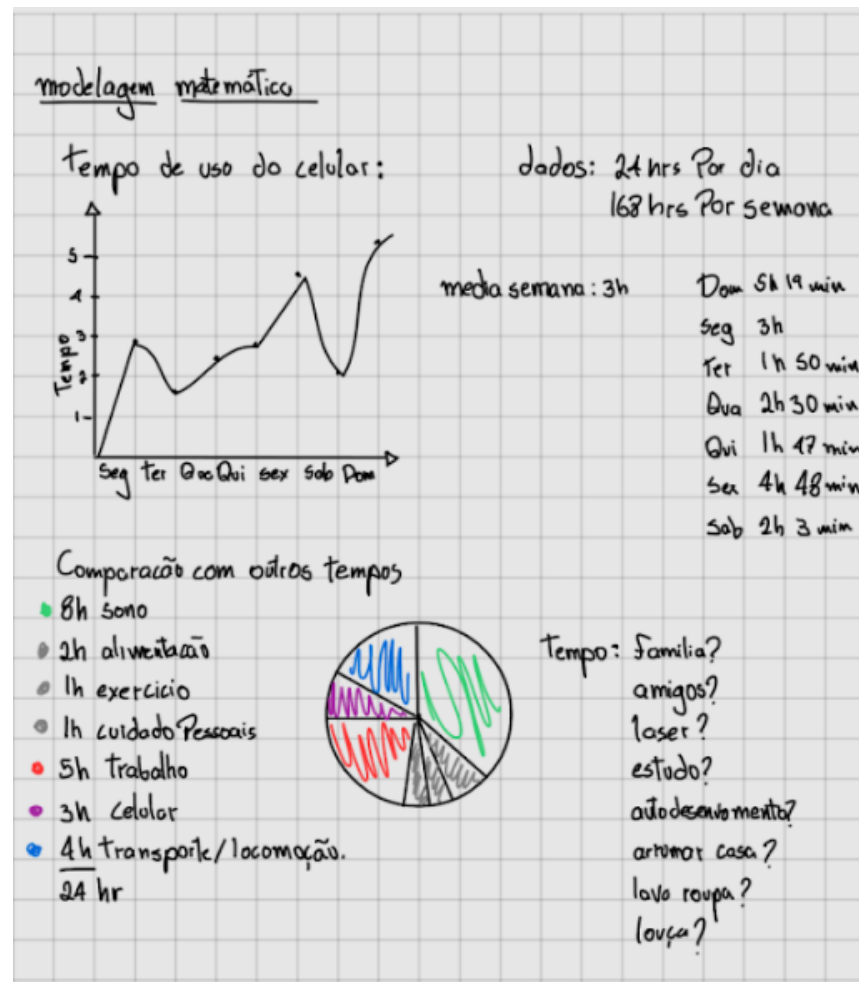 modelagem matemático
Tempo de uso do celular:
dados: 24 hrs Por dia
168 hrs Por semana
5
4
3
2
1
Tempo
Seg Ter Qua Qui sex Sab Dom
media semana: 3h
Dom 5h 19 min
seg 3h
Ter 1h 50 min
Qua 2h 30 min
Qui 1h 47 min
Sex 4h 48 min
Sab 2h 3 min
Comparacão com outros tempos
8h sono
2h alimentacão
1h exercicio
1h cuidado Pessoais
5h trabalho
3h celular
4h transporte/locomoção.
24 hr
Tempo: familia?
amigos?
laser?
estudo?
arrumar casa?
lava roupa?
louça?